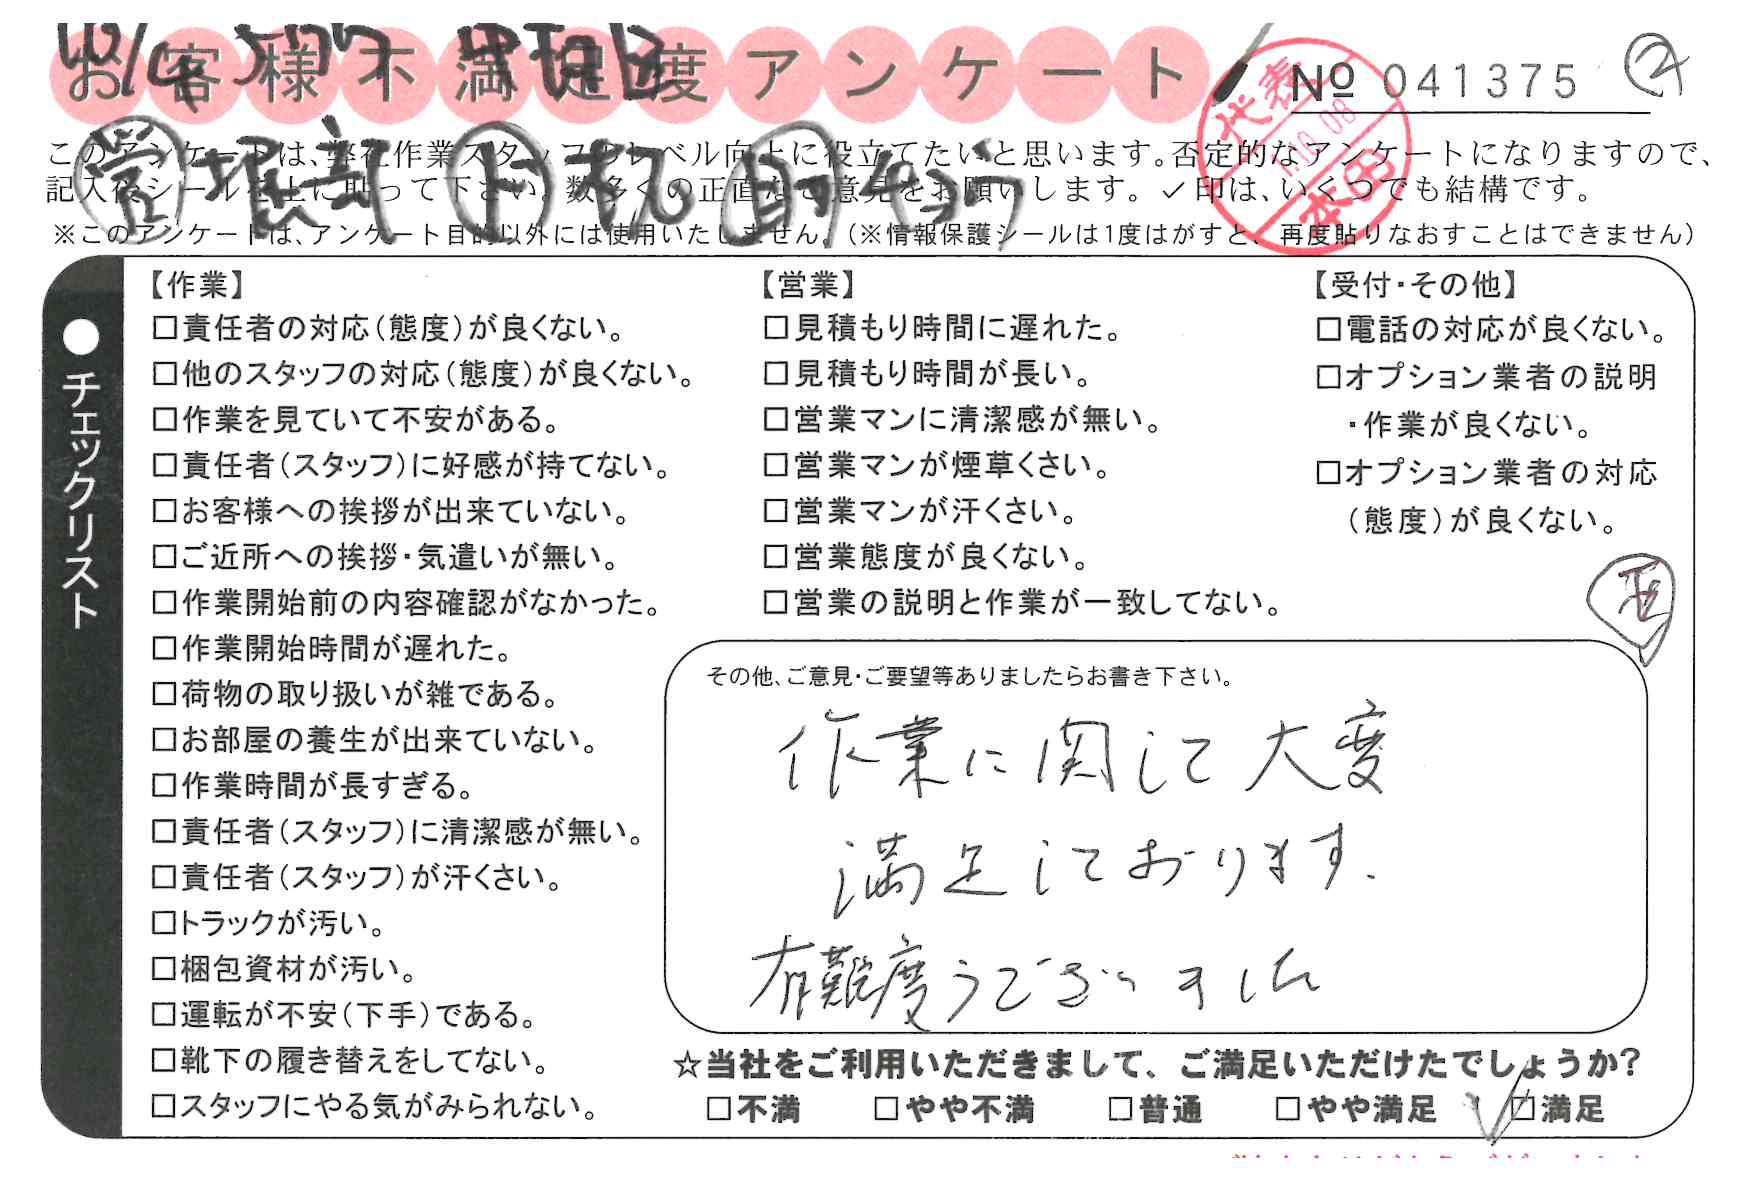 お客様不満足度アンケート
№ 041375 ②
このアンケートは、弊社作業スタッフのレベル向上に役立てたいと思います。否定的なアンケートになりますので、
記入後シールを上に貼って下さい。数多くの正直なご意見をお願いします。✓印は、いくつでも結構です。
※このアンケートは、アンケート目的以外には使用いたしません。（※情報保護シールは1度はがすと、再度貼りなおすことはできません）
代表
10.08
本田
●チェックリスト
【作業】
□責任者の対応（態度）が良くない。
□他のスタッフの対応（態度）が良くない。
□作業を見ていて不安がある。
□責任者（スタッフ）に好感が持てない。
□お客様への挨拶が出来ていない。
□ご近所への挨拶・気遣いが無い。
□作業開始前の内容確認がなかった。
□作業開始時間が遅れた。
□荷物の取り扱いが雑である。
□お部屋の養生が出来ていない。
□作業時間が長すぎる。
□責任者（スタッフ）に清潔感が無い。
□責任者（スタッフ）が汗くさい。
□トラックが汚い。
□梱包資材が汚い。
□運転が不安（下手）である。
□靴下の履き替えをしてない。
□スタッフにやる気がみられない。
【営業】
□見積もり時間に遅れた。
□見積もり時間が長い。
□営業マンに清潔感が無い。
□営業マンが煙草くさい。
□営業マンが汗くさい。
□営業態度が良くない。
□営業の説明と作業が一致してない。
【受付・その他】
□電話の対応が良くない。
□オプション業者の説明
・作業が良くない。
□オプション業者の対応
（態度）が良くない。
その他、ご意見・ご要望等ありましたらお書き下さい。
作業に関して大変
満足しております.
有難度うございました
☆当社をご利用いただきまして、ご満足いただけたでしょうか?
□不満 □やや不満 □普通 □やや満足 ✓□満足